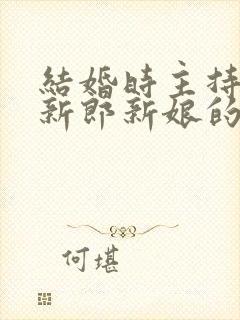 結婚時主持
新郎新娘的
何堪